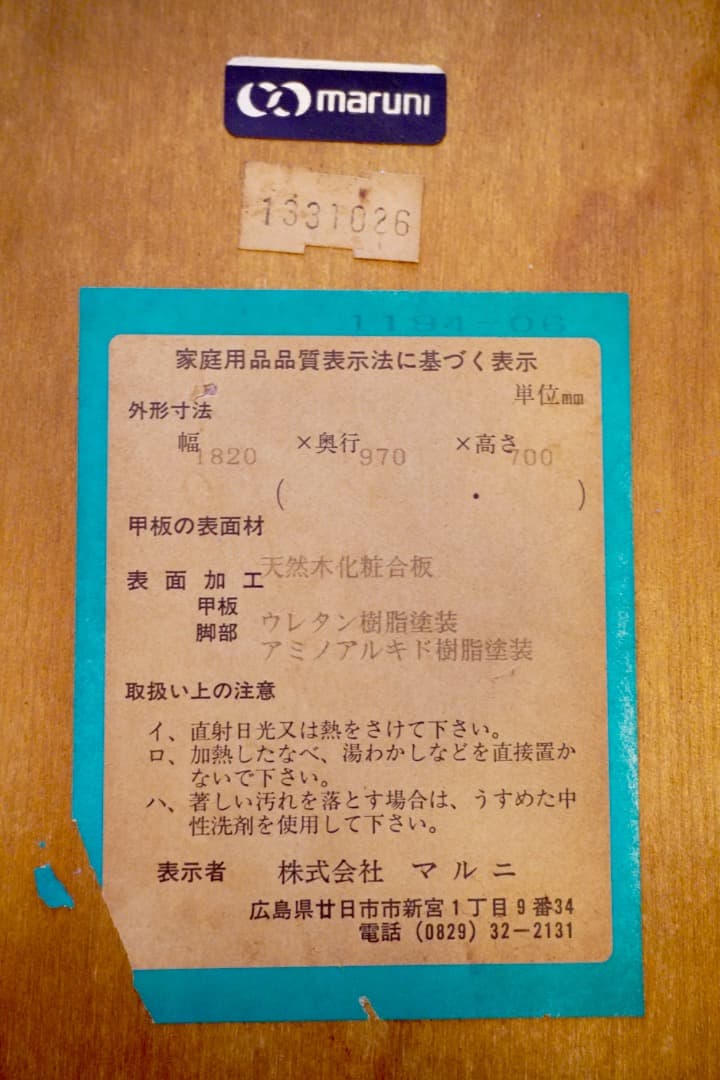 maruni
1331026
1194-06
家庭用品品質表示法に基づく表示
単位mm
外形寸法
幅1820 ×奥行970 ×高さ700
( ・ )
甲板の表面材
天然木化粧合板
表面加工
甲板 ウレタン樹脂塗装
脚部 アミノアルキド樹脂塗装
取扱い上の注意
イ、直射日光又は熱をさけて下さい。
ロ、加熱したなべ、湯わかしなどを直接置か
ないで下さい。
ハ、著しい汚れを落とす場合は、うすめた中
性洗剤を使用して下さい。
表示者 株式会社 マルニ
広島県廿日市市新宮1丁目9番34
電話(0829)32-2131